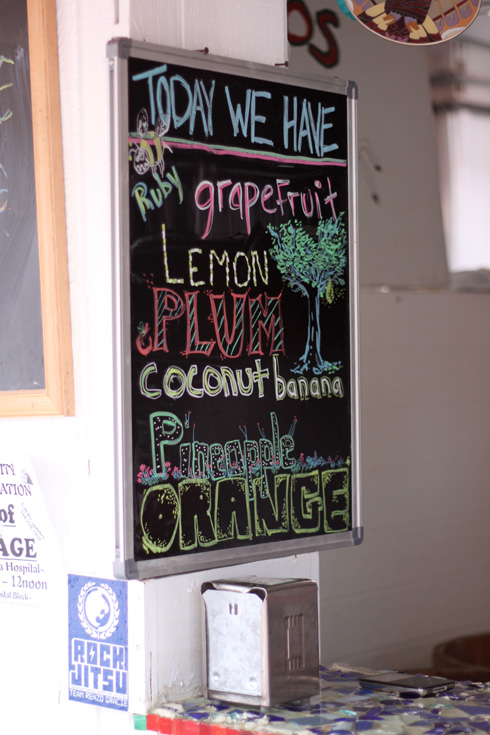 TODAY WE HAVE
Ruby grapefruit
LEMON
PLUM
coconut banana
Pineapple
ORANGE
OS
of
AGE
Hospital-
- 12noon
ROCK
JITSU
TEAM RENZO GRACIE